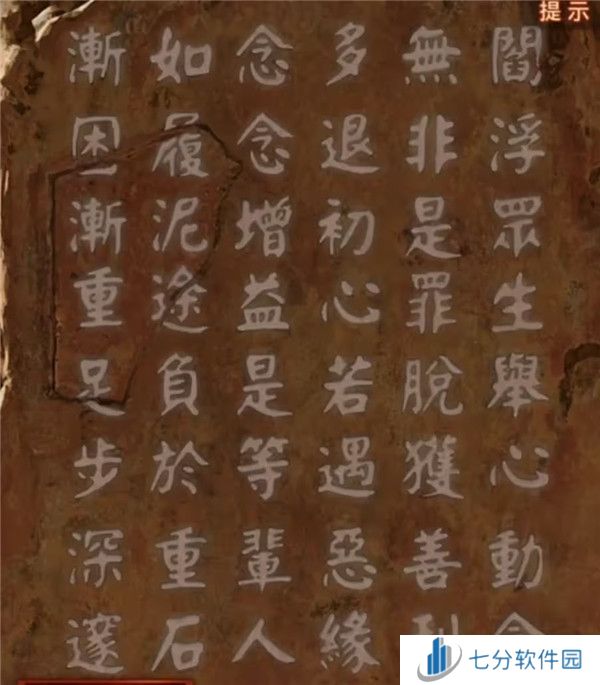 提示
閻浮眾生舉心動
無非是罪脫獲善
多退初心若遇惡緣
念念增益是等輩人
如履泥途負於重石
漸困漸重足步深邃
七分软件园